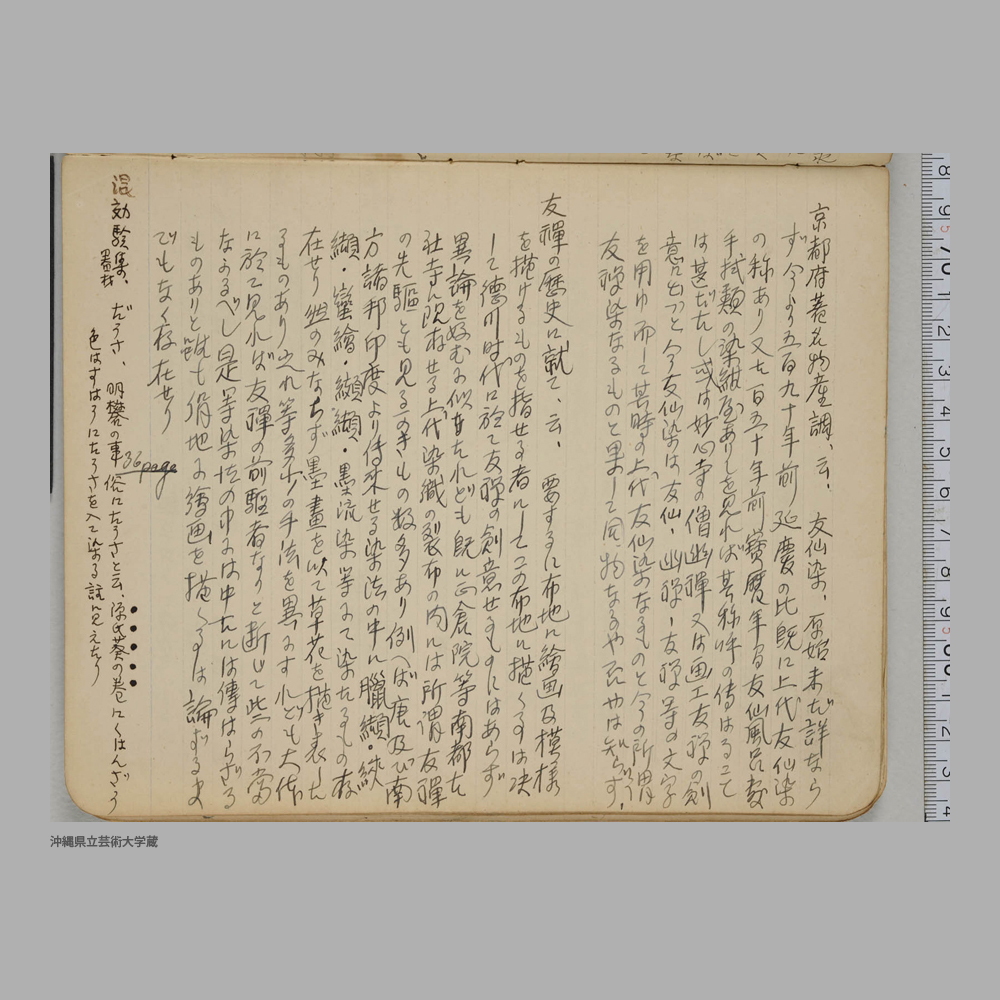 京都府著名物産調、云、 友仙染、原始未だ詳なら
ず今より五百九十年前 延慶の比既に上代友仙染
の称あり又七百五十年前 寶暦年間友仙風呂敷
手拭類の染紺屋ありしを見れば其称呼の傳はること
は甚だ久し或は妙心寺の僧幽禅又は画工友禅の創
意に出づと今友仙染は友仙・幽禅・友禅等の文字
を用ゆ而して其時の上代友仙染なるものと今の所謂
友禅染なるものと果して同物なるや否やは知らず。
友禅の歴史に就て、云、 要するに布地に繪画及模様
を描けるものを指せる者にしてこの布地に描くるは决
して德川時代に於て友禅の創意せるものにはあらず
異論を好むに似たれども既に正倉院等南都古
社寺に現存せる上代染織の裂布の内には所謂友禅
の先驅とも見るべきもの数多あり例へば唐及び南
方諸邦印度より傳来せる染法の中に臘纈・絞
纈・蠻繪・纐纈・墨流染等にて染たるもの存
在せり 些のみならず墨畫を以て草花を描き表した
るものあり之れ等多少の手法を異にすれども大体
に於て見れば友禅の前驅者なりと断じて些の不當
なかるべし是等染法の中には中古には傳はらざる
ものありと雖も絹地に繪画を描くるは論ずるま
でもなく存在せり
36page
混効驗集、 だうさ、 明礬の事 俗にたうさと云、源氏葵の巻にくはんざう
墨材
色はすはうにたうさを入て染る註に見えたり
沖縄県立芸術大学蔵